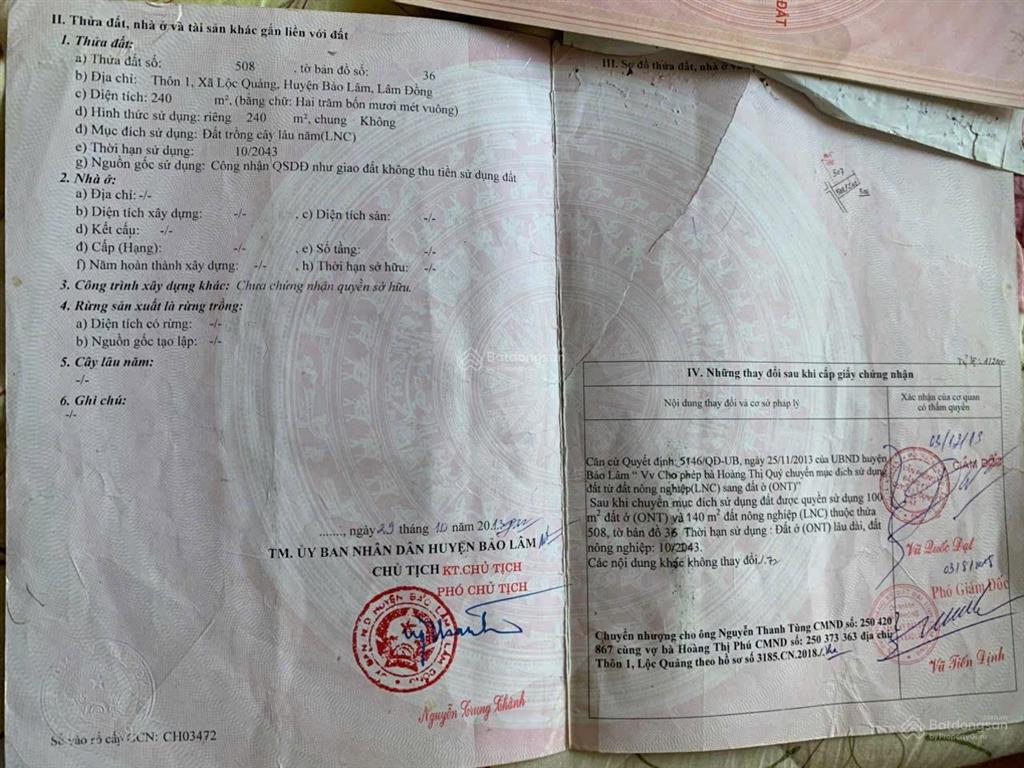 ĐẤT
II. Thửa đất, nhà ở và tài sản khác gắn liền với đất
1. Thửa đất:
a) Thửa đất số: 508 , tờ bản đồ số: 36
b) Địa chỉ: Thôn 1, Xã Lộc Quảng, Huyện Bảo Lâm, Lâm Đồng
c) Diện tích: 240 m². (bằng chữ: Hai trăm bốn mươi mét vuông)
d) Hình thức sử dụng: riêng 240 m², chung Không
đ) Mục đích sử dụng: Đất trồng cây lâu năm(LNC)
e) Thời hạn sử dụng: 10/2043
g) Nguồn gốc sử dụng: Công nhận QSDĐ như giao đất không thu tiền sử dụng đất
2. Nhà ở:
a) Địa chỉ: -/-
b) Diện tích xây dựng: -/- , c) Diện tích sàn: -/-
d) Kết cấu: -/-
đ) Cấp (Hạng): -/- , e) Số tầng: -/-
f) Năm hoàn thành xây dựng: -/- , h) Thời hạn sở hữu: -/-
3. Công trình xây dựng khác: Chưa chứng nhận quyền sở hữu.
4. Rừng sản xuất là rừng trồng:
a) Diện tích có rừng: -/-
b) Nguồn gốc tạo lập: -/-
5. Cây lâu năm:
-/-
6. Ghi chú:
-/-
........, ngày 29 tháng 10 năm 2013
TM. ỦY BAN NHÂN DÂN HUYỆN BẢO LÂM
CHỦ TỊCH KT.CHỦ TỊCH
PHÓ CHỦ TỊCH
Nguyễn Trung Thành
Số vào sổ cấp GCN: CH03472
III. Sơ đồ thửa đất, nhà ở
507
IV. Những thay đổi sau khi cấp giấy chứng nhận
Nội dung thay đổi và cơ sở pháp lý
Xác nhận của cơ quan
có thẩm quyền
03/12/13
GIÁM ĐỐC
Căn cứ Quyết định: 5146/QĐ-UB, ngày 25/11/2013 của UBND huyện
Bảo Lâm “ Vv Cho phép bà Hoàng Thị Quý chuyển mục đích sử dụng
đất từ đất nông nghiệp(LNC) sang đất ở (ONT)”
Sau khi chuyển mục đích sử dụng đất được quyền sử dụng 100
m² đất ở (ONT) và 140 m² đất nông nghiệp (LNC) thuộc thửa
508, tờ bản đồ 36 Thời hạn sử dụng : Đất ở (ONT) lâu dài, đất
nông nghiệp: 10/2043.
Các nội dung khác không thay đổi./.
Vũ Quốc Đạt
Phó Giám Đốc
Chuyển nhượng cho ông Nguyễn Thanh Tùng CMND số: 250 420
867 cùng vợ bà Hoàng Thị Phú CMND số: 250 373 363 địa chỉ:
Thôn 1, Lộc Quảng theo hồ sơ số 3185.CN.2018./.
Vũ Tiến Định
Batdongsan
Batdongsan
by PropertyGuru